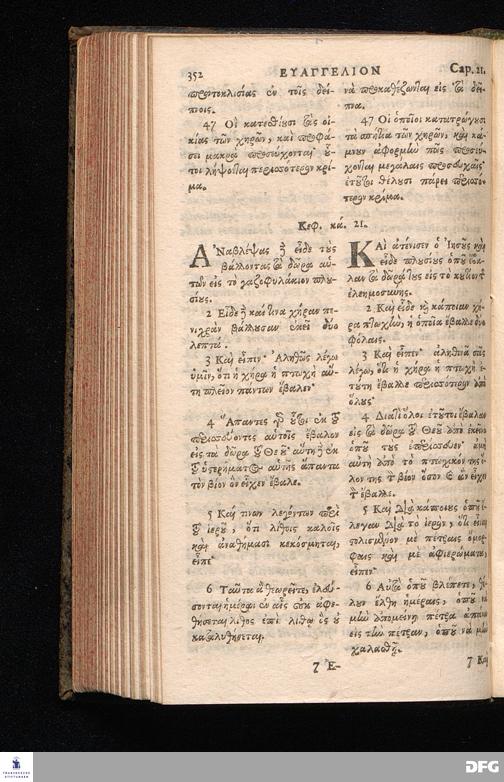 352 ΕΥΑΓΓΕΛΙΟΝ Cap. 21.
πρωτοκλισίας ἐν τοῖς δεί-
πνοις.
47 Οἳ κατεσθίουσι τὰς οἰ-
κίας τῶν χηρῶν, καὶ προφά-
σει μακρὰ προσεύχονται· οὗ-
τοι λήψονται περισσότερον κρί-
μα.
νὰ προκαθέζωνται εἰς τὰ δεῖ-
πνα.
47 Οἱ ὁποῖοι κατατρώγουσι
τὰ σπήτια τῶν χηρῶν, καὶ κά-
μνουν ἀφορμὴν πῶς προσεύ-
χονται μεγάλαις προσευχαῖς·
ἐτοῦτοι θέλουσι πάρει περισσό-
τερον κρίμα.
Κεφ. κά. 21.
ΑΝαβλέψας δὲ εἶδε τοὺς
βάλλοντας τὰ δῶρα αὑ-
τῶν εἰς τὸ γαζοφυλάκιον πλου-
σίους.
2 Εἶδε δὲ καί τινα χήραν πε-
νιχρὰν βάλλουσαν ἐκεῖ δύο
λεπτά.
3 Καὶ εἶπεν· Ἀληθῶς λέγω
ὑμῖν, ὅτι ἡ χήρα ἡ πτωχὴ αὕ-
τη πλεῖον πάντων ἔβαλεν·
4 Ἅπαντες γὰρ οὗτοι ἐκ τοῦ
περισσεύοντος αὐτοῖς ἔβαλον
εἰς τὰ δῶρα τοῦ Θεοῦ· αὕτη δὲ ἐκ
τοῦ ὑστερήματος αὑτῆς ἅπαντα
τὸν βίον ὃν εἶχεν ἔβαλε.
5 Καί τινων λεγόντων περὶ
τοῦ ἱεροῦ, ὅτι λίθοις καλοῖς
καὶ ἀναθήμασι κεκόσμηται,
εἶπε·
6 Ταῦτα ἃ θεωρεῖτε, ἐλεύ-
σονται ἡμέραι ἐν αἷς οὐκ ἀφε-
θήσεται λίθος ἐπὶ λίθῳ ὃς οὐ
καταλυθήσεται.
7 Ἐ-
ΚΑὶ ἀτένισεν ὁ Ἰησοῦς καὶ
εἶδε πλουσίους ὁποῦ
τὰ δῶρά τους εἰς τὸ
ἐλεημοσύνης.
2 Καὶ εἶδε καὶ κάποιαν χή-
ρα πτωχὴν, ἡ ὁποία ἔβαλλε δύο
φόλαις.
3 Καὶ εἶπεν· ἀληθινὰ σᾶς
λέγω, ὅτι ἡ χήρα ἡ πτωχὴ ἐ-
τούτη ἔβαλλε περισσότερον ἀπὸ
ὅλους·
4 Διατὶ ὅλοι ἐτοῦτοι ἔβαλαν
εἰς τὰ δῶρα τοῦ Θεοῦ ἀπὸ ἐκεῖνο
ὁποῦ τοὺς
αὐτὴ ἀπὸ τὸ πτωχικόν της
λον της τὸν βίον ὅσον καὶ ἂν εἶχε
τὸν ἔβαλλε.
5 Καὶ διὰ κάποιους ὁποῦ ἔ-
λεγαν διὰ τὸ ἱερὸν, ὅτι εἶναι
στολισμένον μὲ πέτραις ὄμορ-
φαις καὶ μὲ ἀφιερώματα,
εἶπεν·
6 Αὐτὰ ὁποῦ βλέπετε,
ἔλθη ἡμέραις, ὁποῦ νὰ
μὴν ἀπομείνῃ πέτρα ἀπάνω
εἰς τὴν πέτραν, ὁποῦ νὰ μὴν
χαλασθῇ.
7 Καὶ
DFG